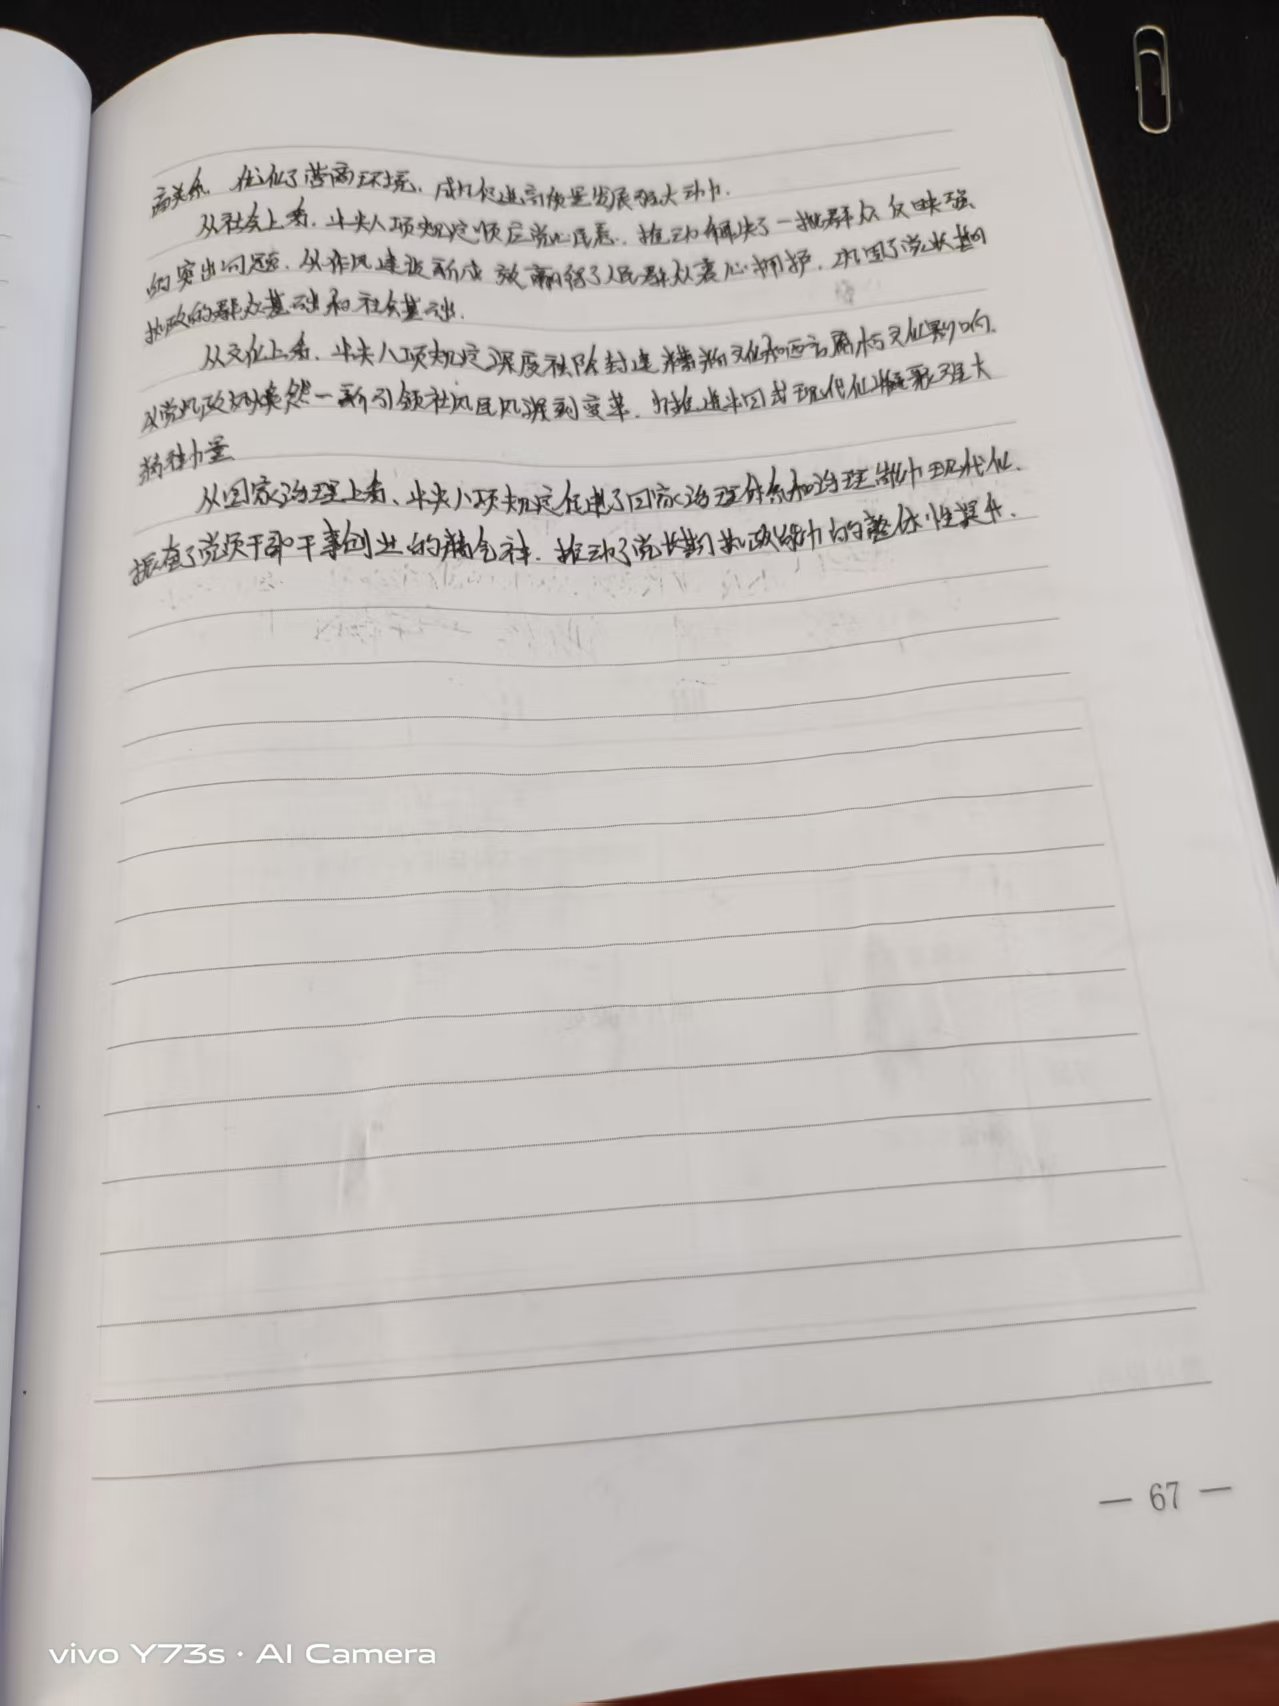 商关系，优化了营商环境，成为促进高质量发展强大动力。
从社会上看，中央八项规定顺应党心民意，推动解决了一批群众反映强
的突出问题，以作风建设新成效赢得了人民群众衷心拥护，巩固了党长期
执政的群众基础和社会基础。
从文化上看，中央八项规定深度祛除封建糟粕文化和西方腐朽文化影响，
以党风政风焕然一新引领社风民风深刻变革，为推进中国式现代化凝聚强大
精神力量
从国家治理上看，中央八项规定促进了国家治理体系和治理能力现代化，
振奋了党员干部干事创业的精气神，推动了党长期执政能力的整体性提升。
— 67 —
vivo Y73s · AI Camera